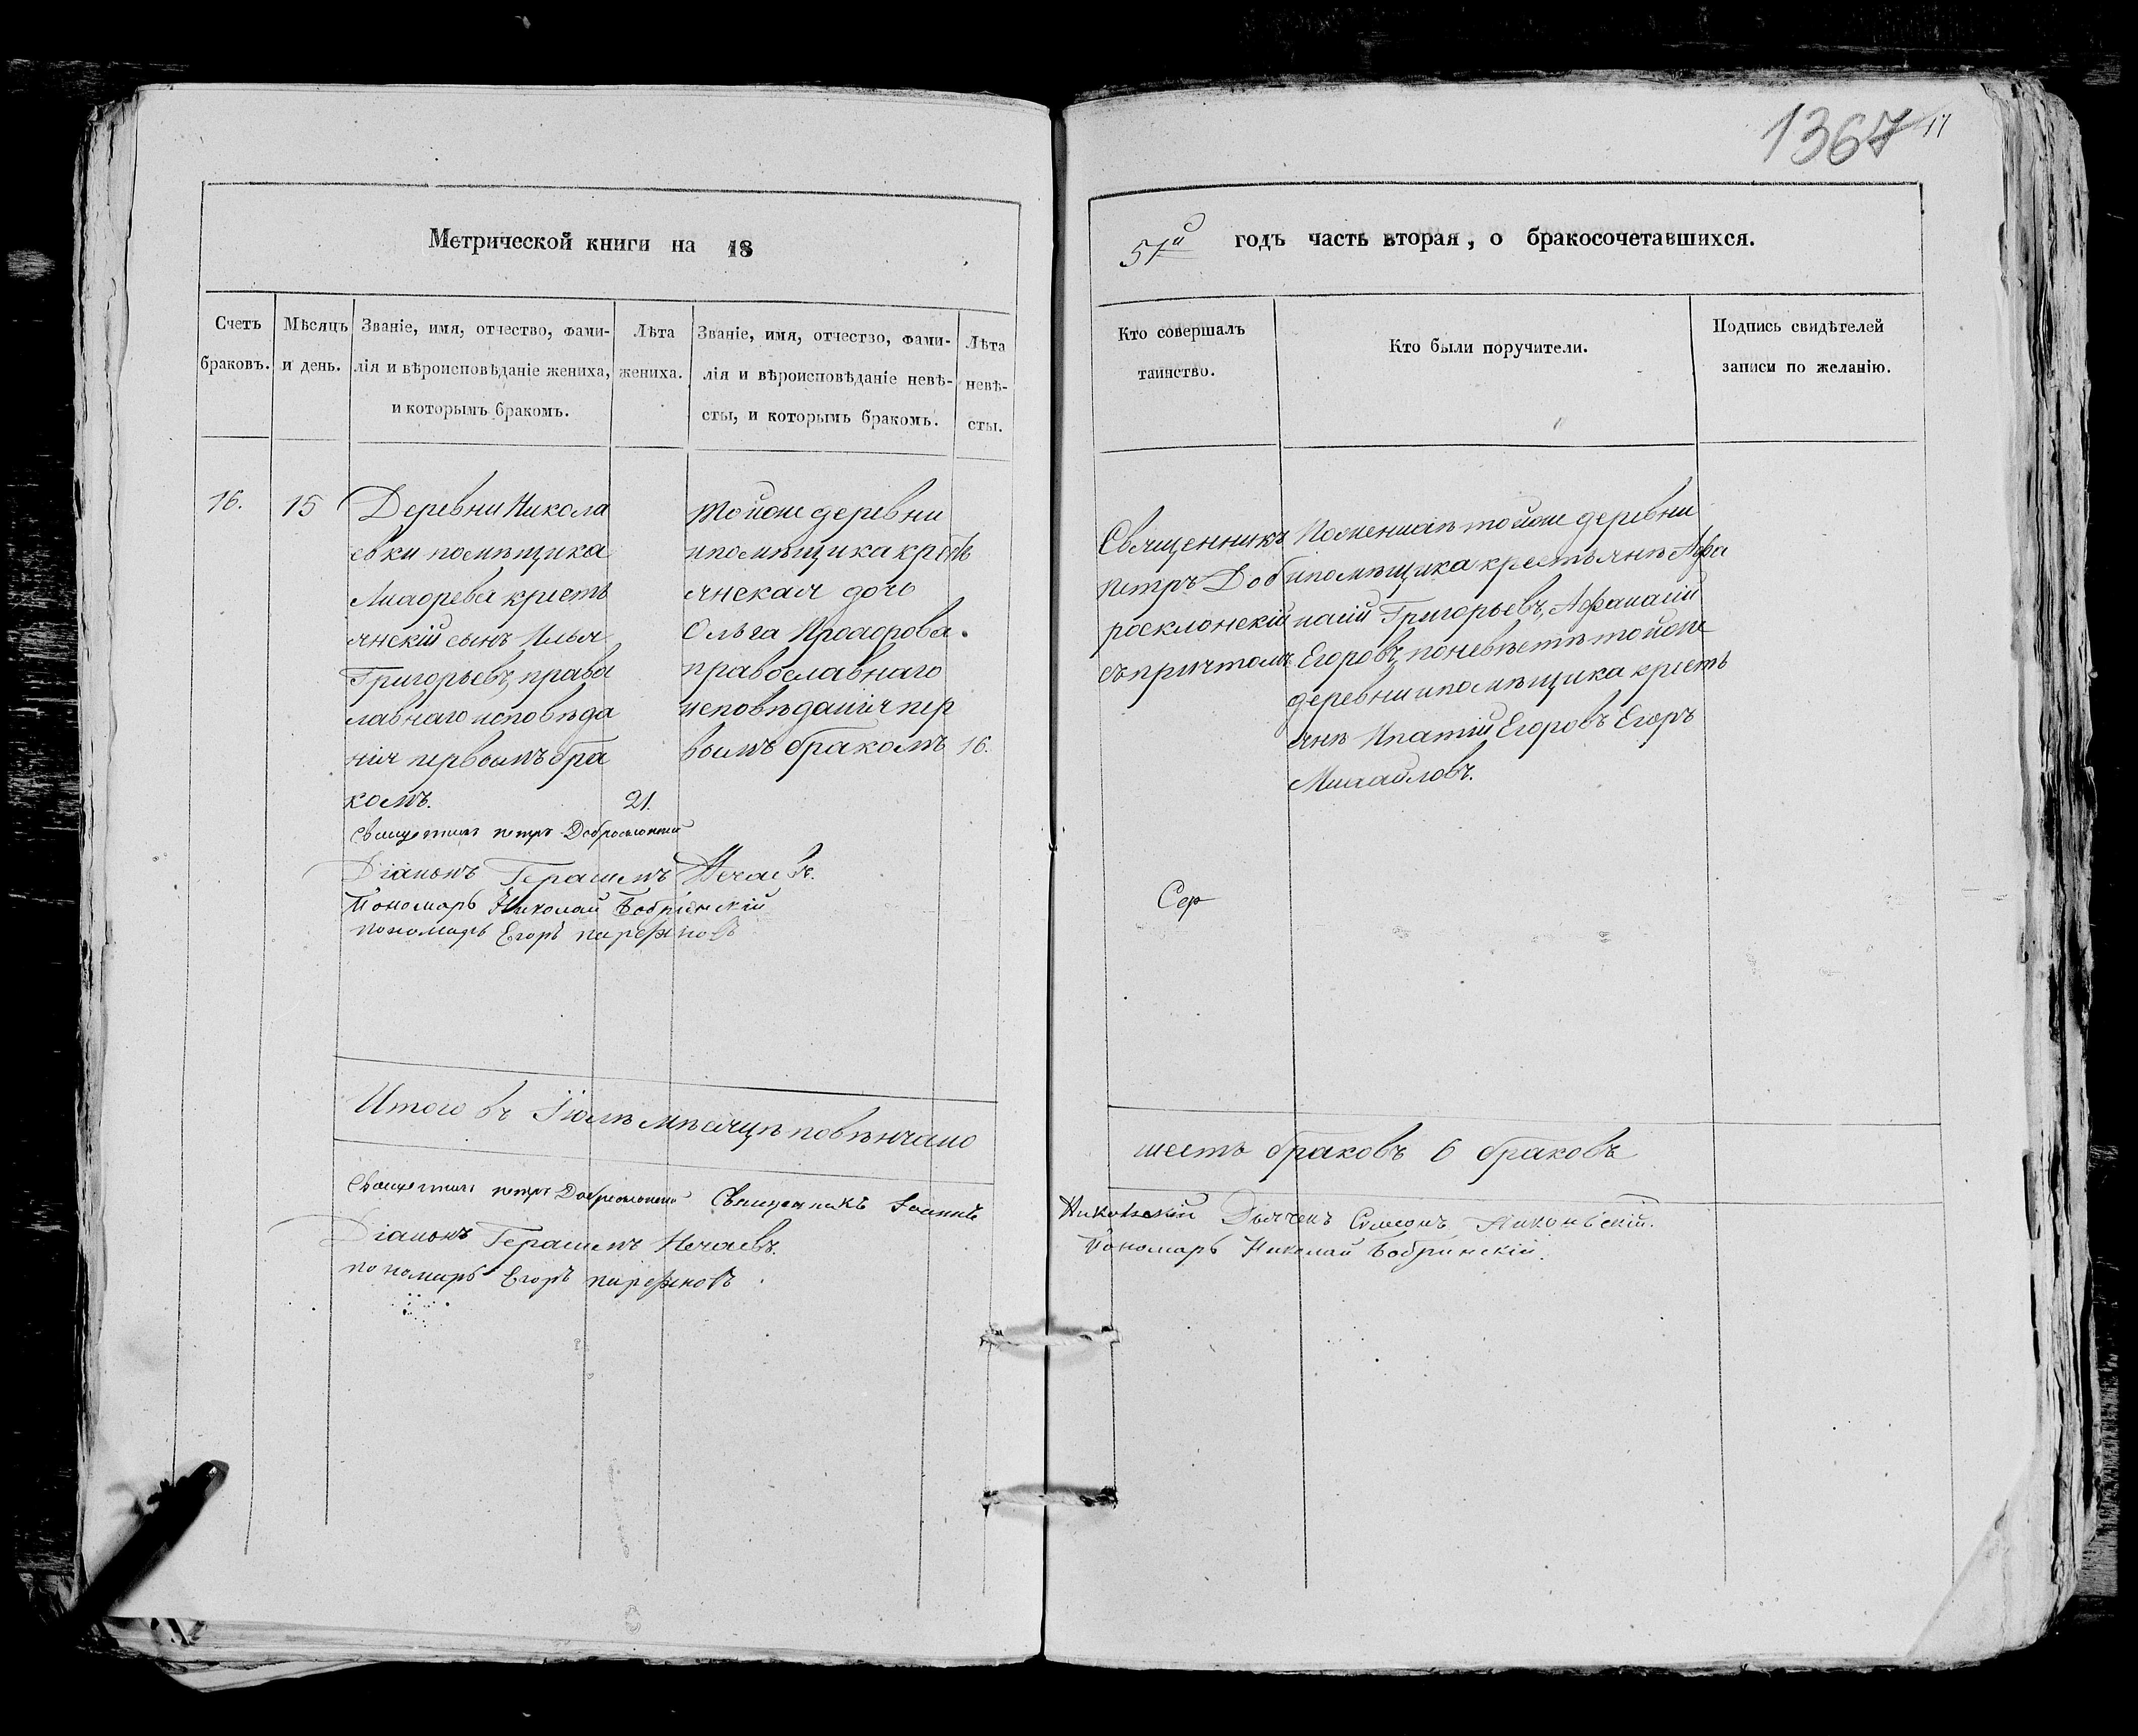 1367 17
Метрической книги на 18
51й годъ часть вторая, о бракосочетавшихся.
Счетъ браковъ.
Мѣсяцъ и день.
Званіе, имя, отчество, фами-
лія и вѣроисповѣданіе жениха,
и которымъ бракомъ.
Лѣта
жениха.
Званіе, имя, отчество, фами-
лія и вѣроисповѣданіе невѣ-
сты, и которымъ бракомъ.
Лѣта
невѣ-
сты.
Кто совершалъ
таинство.
Кто были поручители.
Подпись свидѣтелей
записи по желанію.
16. 15
Деревни Никола
евки помѣщика
кресть
янскій сынъ Илья
Григорьевъ, права
лавнаго исповѣда
нія первымъ бра
комъ. 21.
тойже деревни
ипомѣщика крѣть
янская дочь
Ольга
православнаго
исповѣданія пер
вымъ бракомъ 16.
Священникъ
петръ Доб
росклонскій
съ причтомъ
Пожениxѣ тойже деревни
ипомѣщика крестьянѣ Афа
насій Григорьевъ, Афанасій
Егоровъ, поневѣстѣ тойже
деревни ипомѣщика кресть
янѣ Ипатій Егоровъ Егоръ
Михайловъ.
Священникъ петръ Добросклонскій
Діаконъ Герасимъ Нечаевъ.
Пономарь Николай Бобринскій
пономарь Егоръ парѳеновъ
Сер
Итого въ Іюлѣ мѣсяцѣ повѣнчано
шесть браковъ 6 браковъ
Священникъ петръ Добросклонскій Священникъ Іоаннъ
Никольскій Дьячекъ Симеонъ Никольскій.
Діаконъ Герасимъ Нечаевъ.
Пономарь Николай Бобринскій.
пономарь Егоръ парѳеновъ